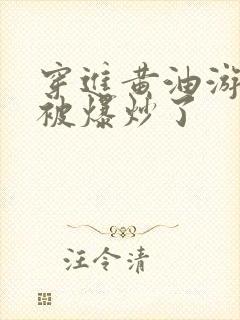 穿进黄油游
被爆炒了
汪令清